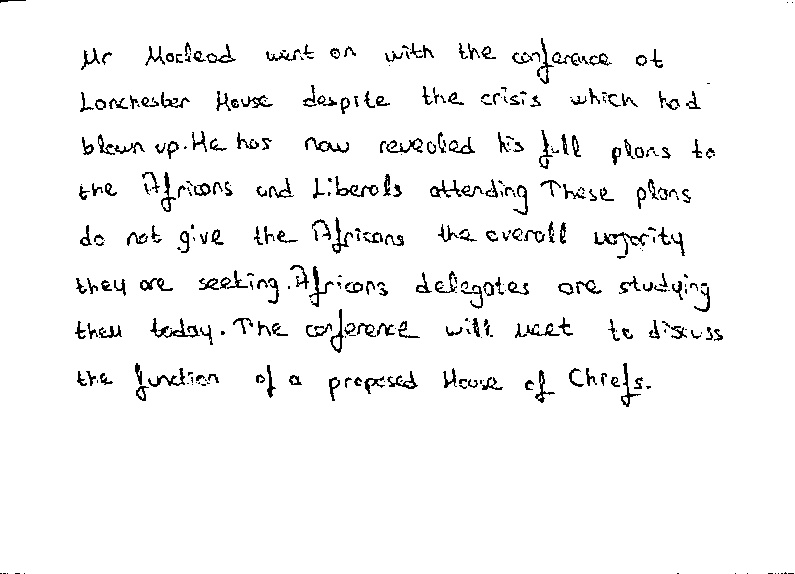 Mr Macleod went on with the conference at
Lanchester House despite the crisis which had
blown up. He has now revealed his full plans to
the Africans and Liberals attending These plans
do not give the Africans the overall majority
they are seeking. Africans delegates are studying
them today. The conference will meet to discuss
the function of a proposed House of Chiefs.